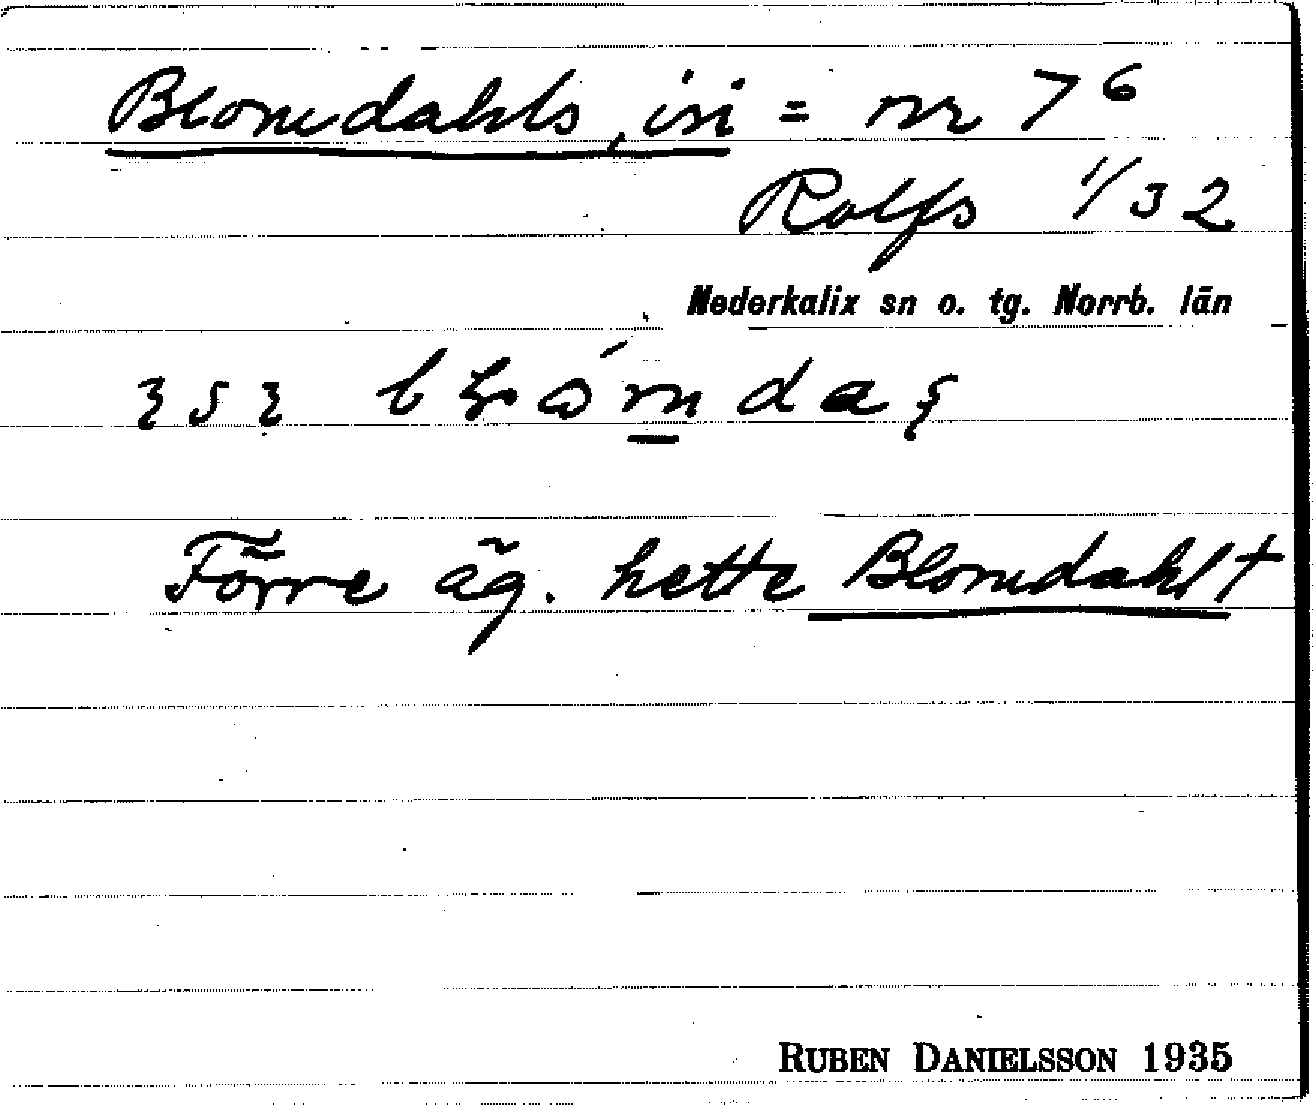 Blomdahls, isi = nr 7⁶
Rolfs 1/32
Nederkalix sn o. tg. Norrb. län
Förre äg. hette Blomdahl †
RUBEN DANIELSSON 1935